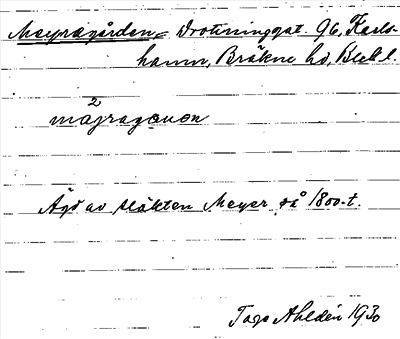 Meyragården = Drottninggat. 96, Karls-
hamn, Bräkne hd, Blek l.
2
mạ̈jragọɷen
Ägd av släkten Meyer på 1800-t.
Tage Ahldén 1930